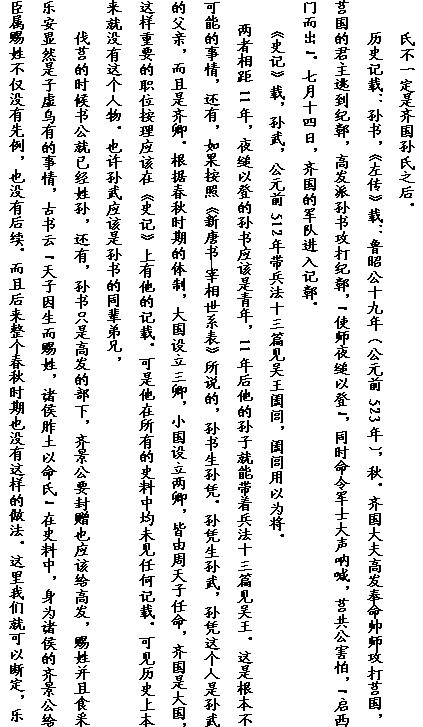 氏不一定是齐国孙氏之后。
历史记载：孙书，《左传》载：鲁昭公十九年（公元前523年），秋。齐国大夫高发奉命帅师攻打莒国，
莒国的君主逃到纪鄣，高发派孙书攻打纪鄣，“使师夜缒以登”，同时命令军士大声呐喊，莒共公害怕，“启西
门而出”。七月十四日，齐国的军队进入记鄣。
《史记》载，孙武，公元前512年带兵法十三篇见吴王阖闾，阖闾用以为将。
两者相距11年，夜缒以登的孙书应该是青年，11年后他的孙子就能带着兵法十三篇见吴王。这是根本不
可能的事情，还有，如果按照《新唐书·宰相世系表》所说的，孙书生孙凭。孙凭生孙武，孙凭这个人是孙武
的父亲，而且是齐卿。根据春秋时期的体制，大国设立三卿，小国设立两卿，皆由周天子任命，齐国是大国，
这样重要的职位按理应该在《史记》上有他的记载。可是他在所有的史料中均未见任何记载。可见历史上本
来就没有这个人物。也许孙武应该是孙书的同辈弟兄，
伐莒的时候书公就已经姓孙，还有，孙书只是高发的部下，齐景公要封赠也应该给高发，赐姓并且食采
乐安显然是子虚乌有的事情，古书云“天子因生而赐姓，诸侯胙土以命氏”在史料中，身为诸侯的齐景公给
臣属赐姓不仅没有先例，也没有后续。而且后来整个春秋时期也没有这样的做法。这里我们就可以断定，乐